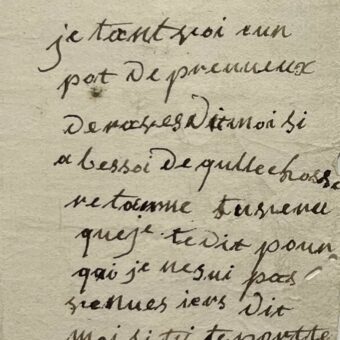 je tant voi eun
pot de prenueux
de raves dit moi si
a bessoi de qulle chosse
retamme tu svenu
que je te dit pour
qui je ne sui pas
venues iers dit
moi si tu te portte